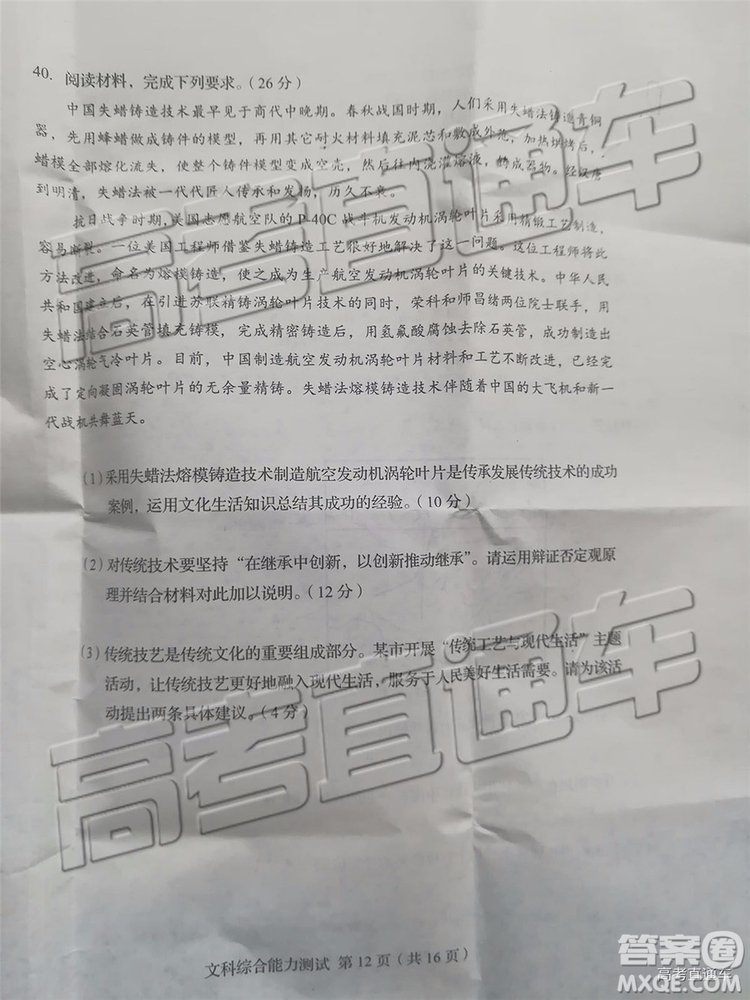 40. 阅读材料，完成下列要求。（26 分）
中国失蜡铸造技术最早见于商代中晚期。春秋战国时期，人们采用失蜡法铸造青铜
器，先用蜂蜡做成铸件的模型，再用其它耐火材料填充泥芯和敷成外范，加热烘烤后，
蜡模全部熔化流失，使整个铸件模型变成空壳，然后往内浇灌熔液，铸成器物。经汉唐
到明清，失蜡法被一代代匠人传承和发扬，历久不衰。
抗日战争时期，美国志愿航空队的 P-40C 战斗机发动机涡轮叶片采用精锻工艺制造，
容易断裂。一位美国工程师借鉴失蜡铸造工艺很好地解决了这一问题。这位工程师将此
方法改进，命名为熔模铸造，使之成为生产航空发动机涡轮叶片的关键技术。中华人民
共和国建立后，在引进苏联精铸涡轮叶片技术的同时，荣科和师昌绪两位院士联手，用
失蜡法结合石英管填充铸模，完成精密铸造后，用氢氟酸腐蚀去除石英管，成功制造出
空心涡轮气冷叶片。目前，中国制造航空发动机涡轮叶片材料和工艺不断改进，已经完
成了定向凝固涡轮叶片的无余量精铸。失蜡法熔模铸造技术伴随着中国的大飞机和新一
代战机共舞蓝天。
（1）采用失蜡法熔模铸造技术制造航空发动机涡轮叶片是传承发展传统技术的成功
案例，运用文化生活知识总结其成功的经验。（10 分）
（2）对传统技术要坚持“在继承中创新，以创新推动继承”。请运用辩证否定观原
理并结合材料对此加以说明。（12 分）
（3）传统技艺是传统文化的重要组成部分。某市开展“传统工艺与现代生活”主题
活动，让传统技艺更好地融入现代生活，服务于人民美好生活需要。请为该活
动提出两条具体建议。（4 分）
文科综合能力测试 第 12 页（共 16 页）
高考直通车
高考直通车
答案卷
高考直通车
MXQE.COM